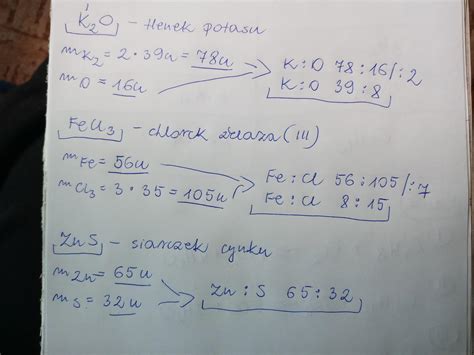 K₂O - tlenek potasu
mK₂ = 2 · 39u = 78u
mO = 16u
K : O 78 : 16 /: 2
K : O 39 : 8
FeCl₃ - chlorek żelaza (III)
mFe = 56u
mCl₃ = 3 · 35 = 105u
Fe : Cl 56 : 105 /: 7
Fe : Cl 8 : 15
ZnS - siarczek cynku
mZn = 65u
mS = 32u
Zn : S 65 : 32